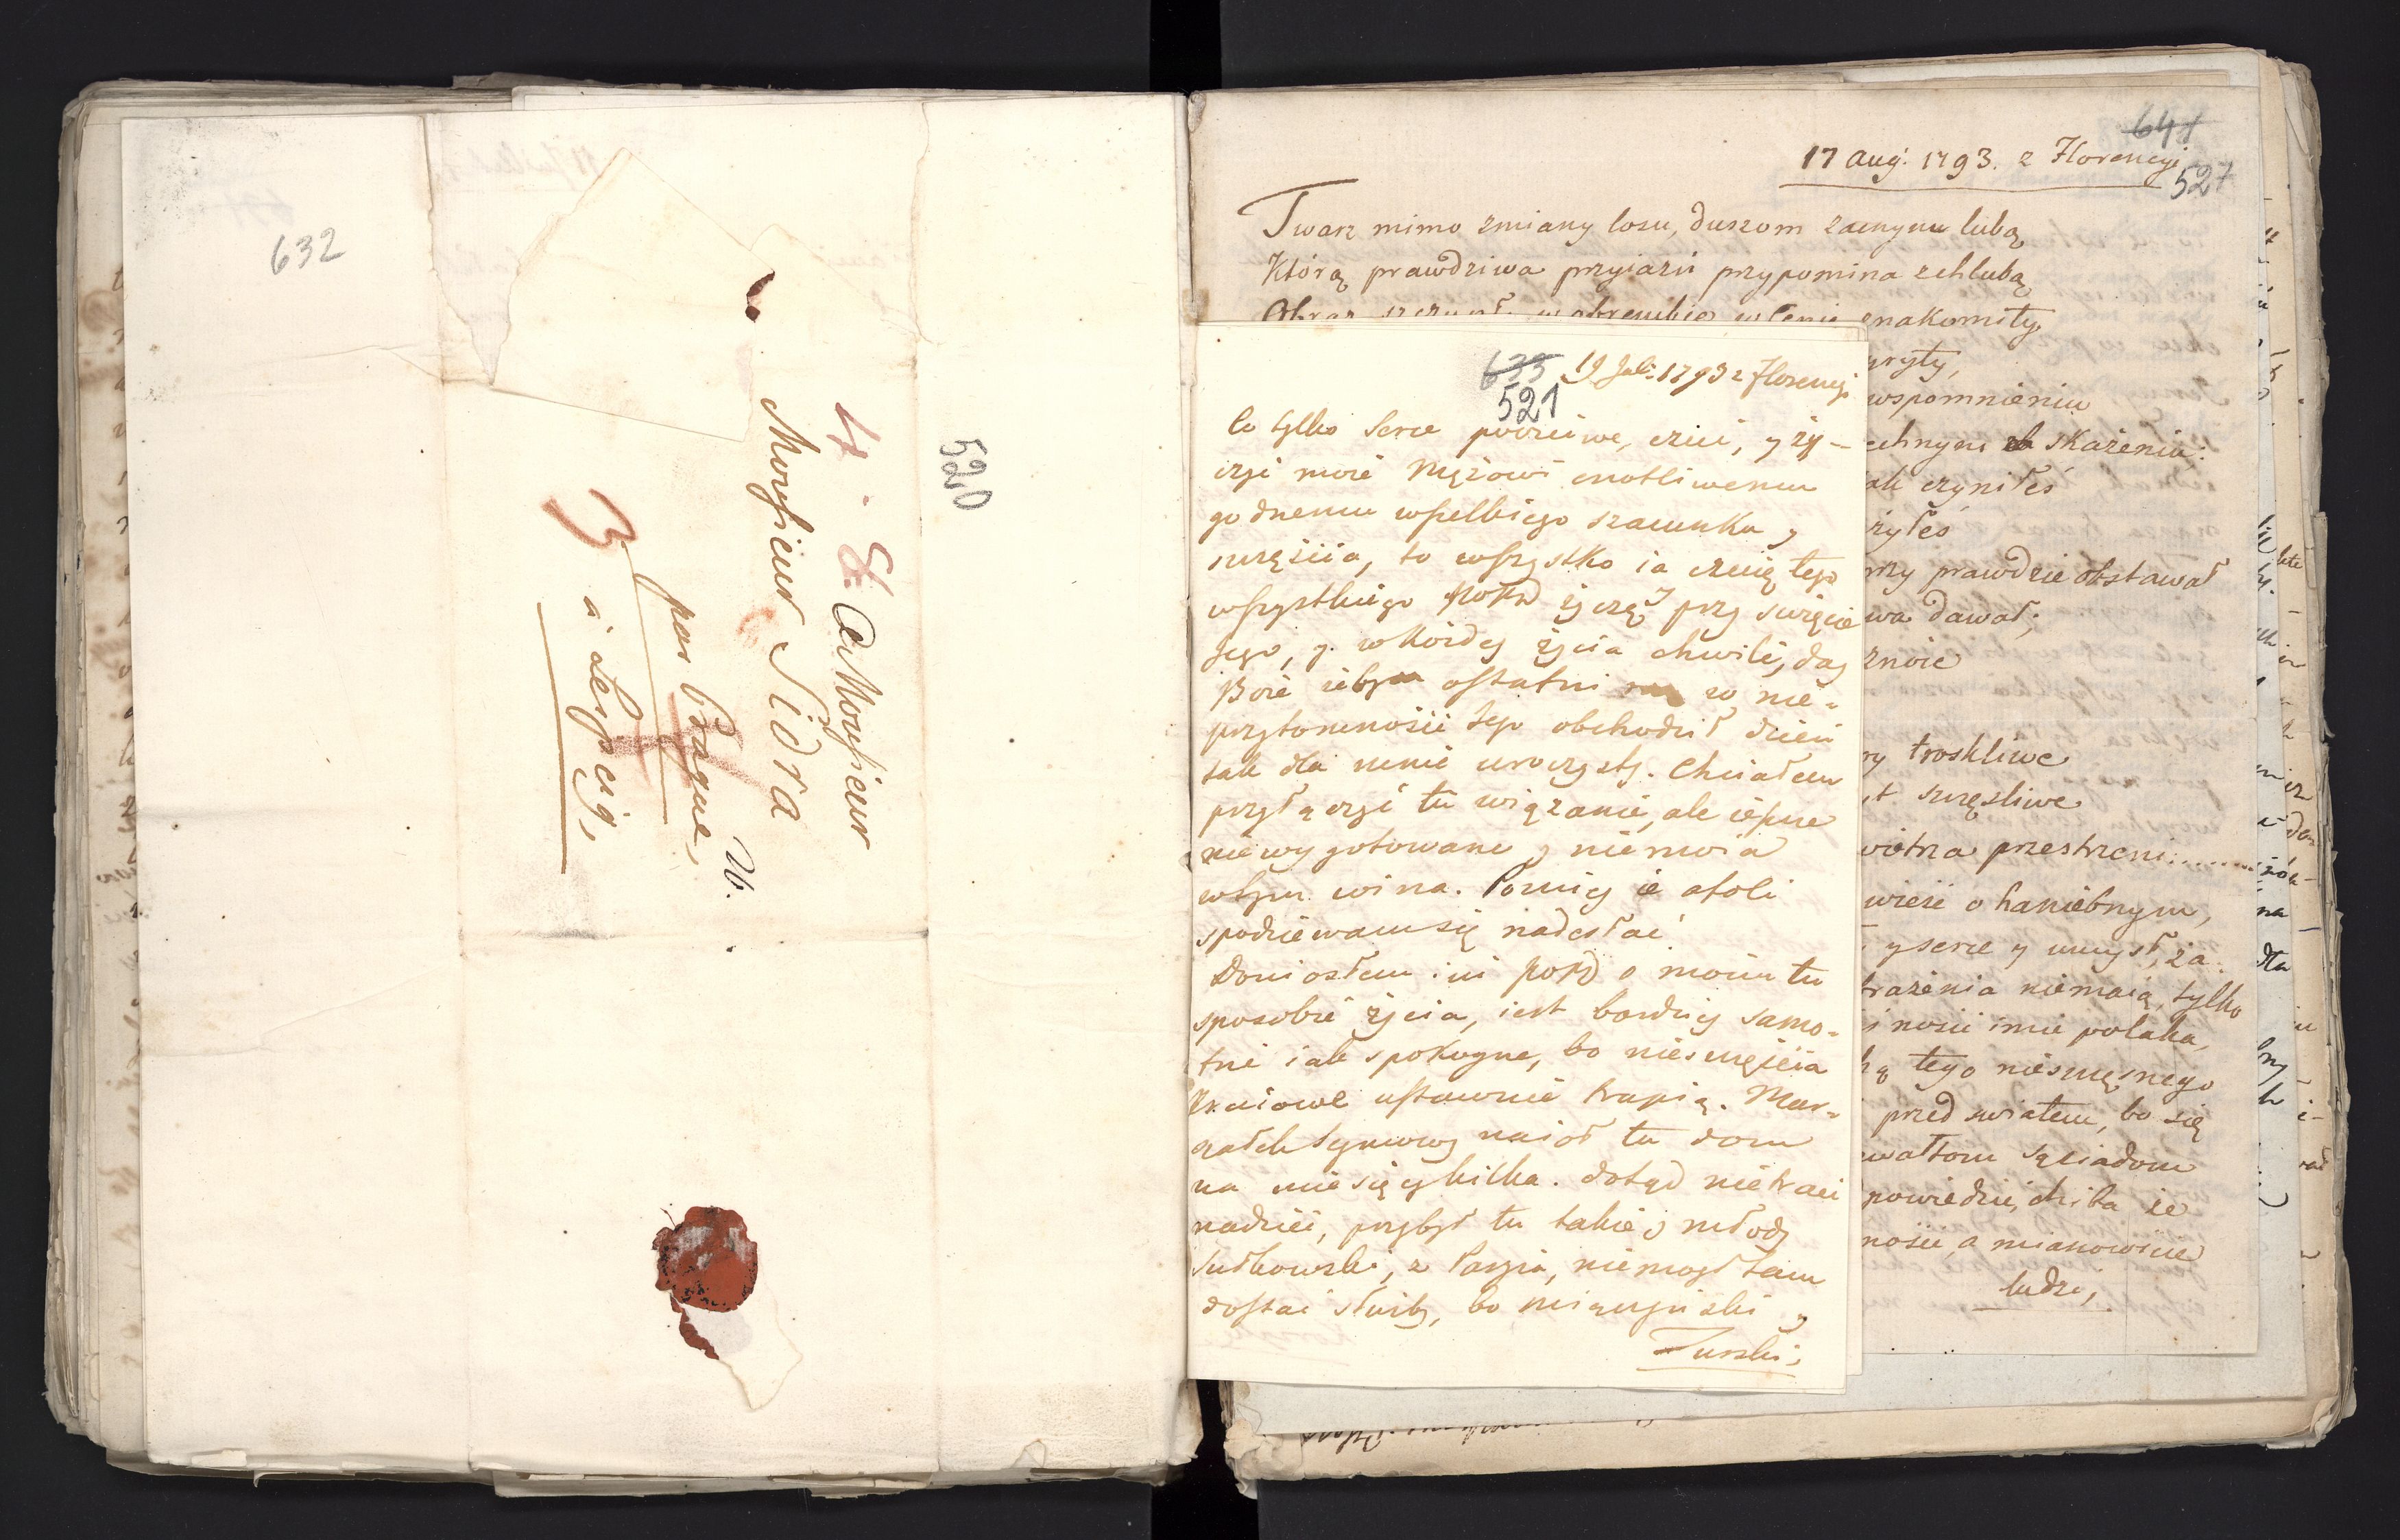 632
520
4. 8.
A Monsieur
Monsieur Sidra
par Prague,
3
à Leipzig,
641
17 Aug: 1793. z Florencyi
527
Twarz mimo zmiany losu, duszom zacnym lubą
Którą prawdziwa przyiazń przypomina zchlubą
znakomity,
wspomnieniu
skażeniu:
czyniłeś
przy prawdzie obstawał
dawał;
troskliwe
szczęsliwe
przestrzeni........
o haniebnym,
y serce y umysł, za-
niemaią, tylko
nosić imie polaka,
tego niesczęsnego
przed swiatem, bo się
Sąsiadom
powiedzieć, chiba że
a mianowicie
ludzi,
633 19 Jul: 1793 z Florencyi
521
Co tylko Serce poczciwe, czuć, y ży-
czyć może Mężowi cnotliwemu
godnemu wszelkiego szacunku y
szczęścia, to wszystko ia czuię tego
wszystkiego życzę przy święcie
Jego, y w każdey życia chwili, day
Boże żebym ostatni raz w nie-
przytomności Jego obchodził dzień
tak dla mnie uroczysty. Chciałem
przyłączyć tu wiązanie, ale ieszcze
niewygotowane y nie moia
wtym wina. Poźniey ie atoli
spodziewam się nadesłać.
Doniosłem iuż o moim tu
sposobie życia, iest bardziey samo-
tne iak spokoyne, bo niesczęścia
Kraiowe ustawnie trapią. Mar-
szałek Seymowy naiął tu dom
na miesięcy kilka. dotąd nietraci
nadziei, przybył tu także y młody
Sułkowski, z Paryża, niemogł tam
dostać służby, bo Miączyński y
Turski,